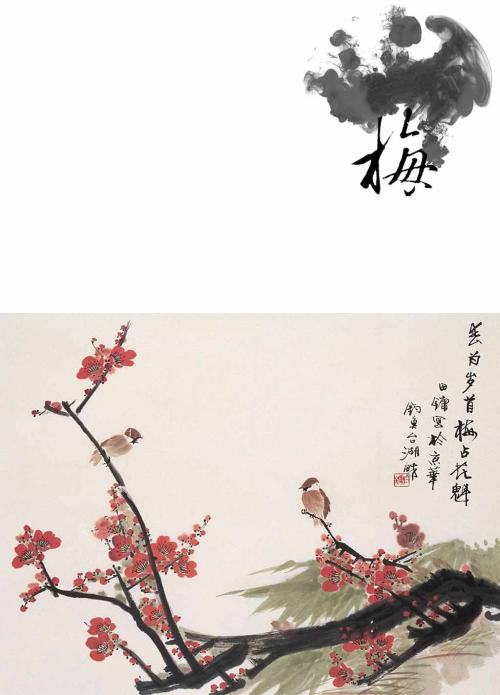 梅
春为岁首梅占花魁
田镛写於京华
钓鱼台湖畔